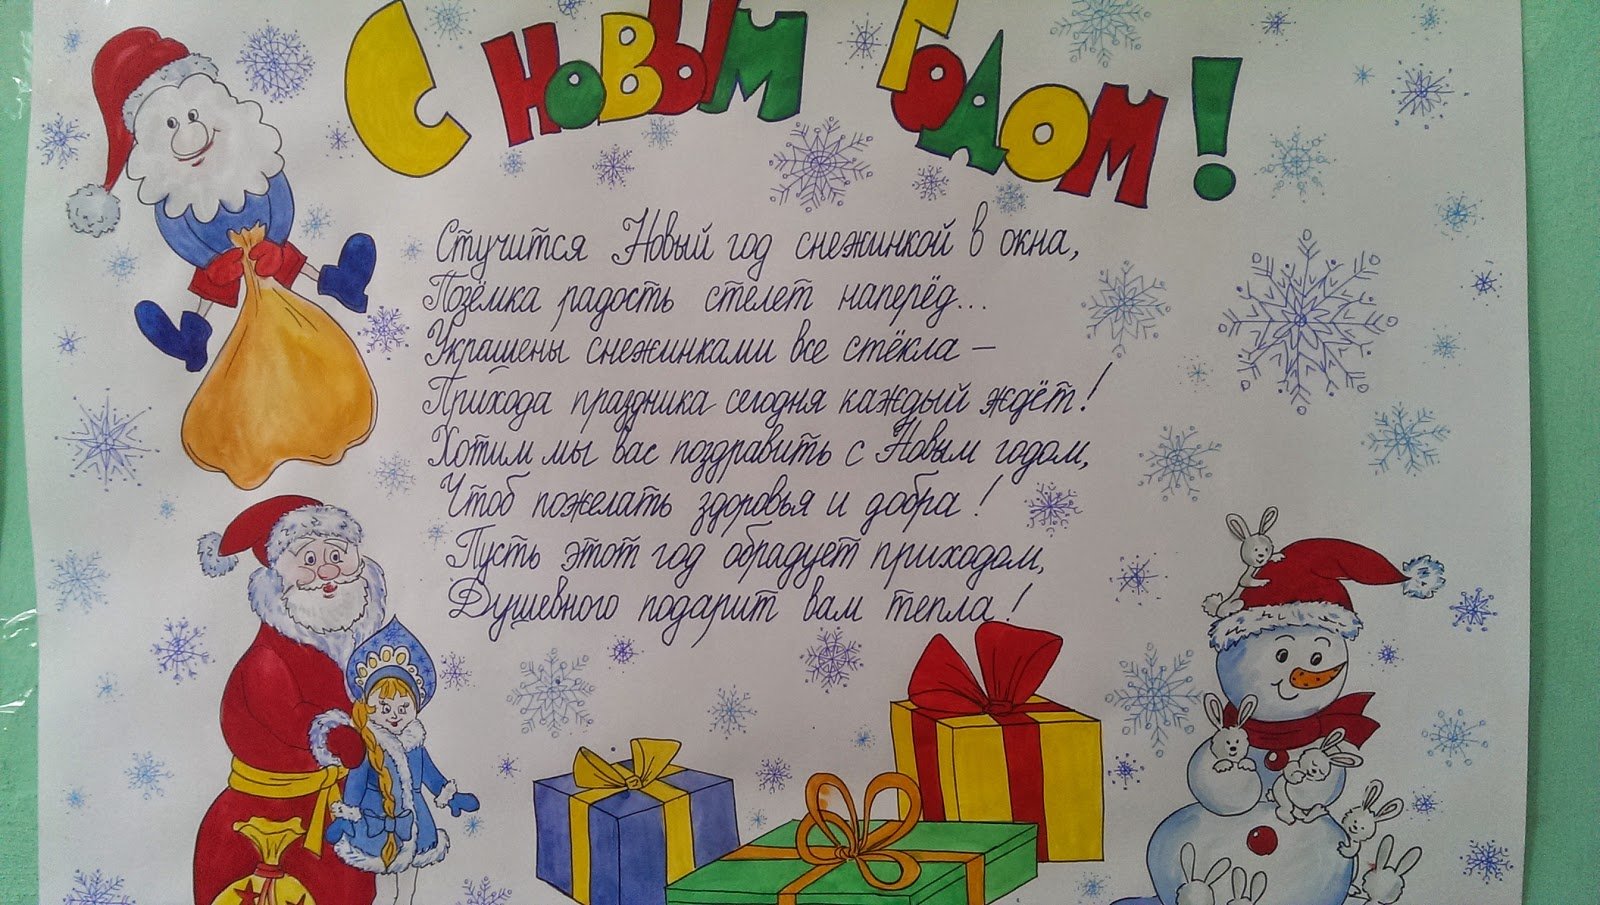 С НОВЫМ ГОДОМ!
Стучится Новый год снежинкой в окна,
Позёмка радость стелет наперёд...
Украшены снежинками все стёкла –
Прихода праздника сегодня каждый ждёт!
Хотим мы вас поздравить с Новым годом,
Чтоб пожелать здоровья и добра!
Пусть этот год обрадует приходом,
Душевного подарит вам тепла!